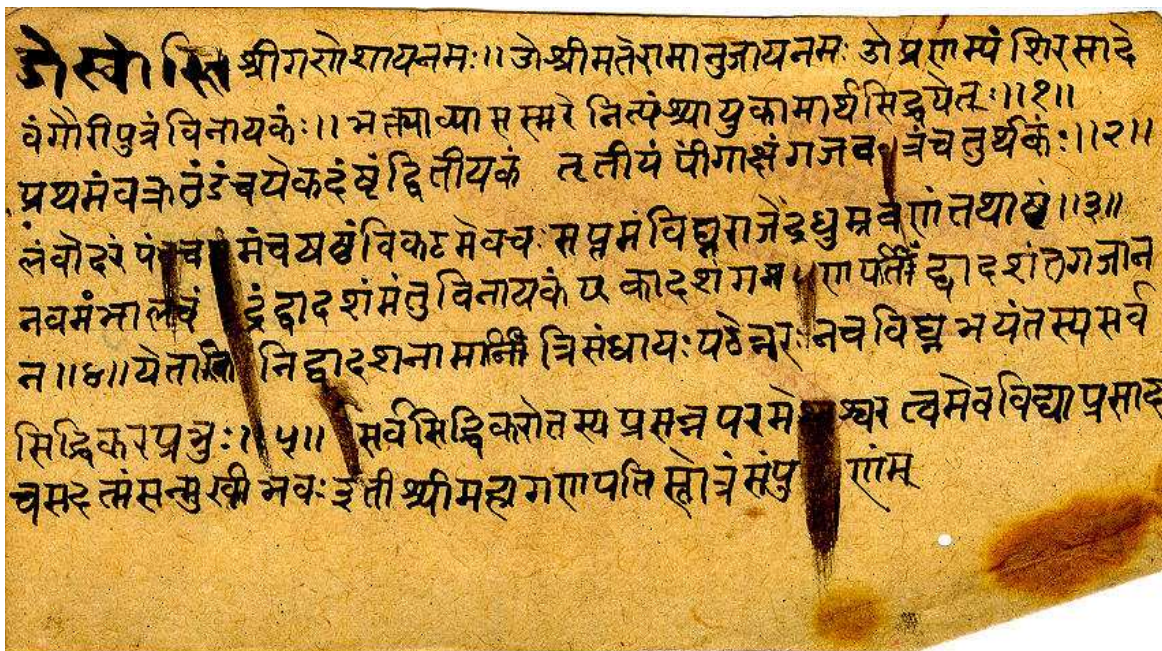 ॐ स्वास्ति श्रीगणेशायनमः॥ ॐ श्रीमतेरामानुजायनमः ॐ प्रणम्यं शिरसादे
वंगौरीपुत्रंविनायकंः॥ भक्त्याव्यासस्मरेनित्यंश्यायुकामार्थसिद्धयेत्ः॥१॥
प्रथमंवक्रतुंडंचयेकदंष्ट्रंद्वितीयकं तृतीयं पींगाक्षंगजव त्रंचतुर्थकंः॥२॥
लंवोदरं पं मंचयष्ठंविकटमेवचः सप्तमंविघ्नराजेंद्रधुम्रव र्णंतथाष्टं॥३॥
नवमंभालचं द्रंद्वादशंमंतुविनायकं एकादशं गणपतीं द्वादशंतुगजान
न॥४॥येता निद्वादशनामानीं त्रिसंधायः पठेन्नरः नचविघ्नभयंतस्यसर्व
सिद्धिकरप्रभुः॥५॥ सर्वसिद्धिकरोतस्य प्रसन्न परमे श्वर त्वमेवविद्याप्रसाद
सन्मुखी भवः इती श्रीमहागणपतिस्तोत्रंसंपु र्णंम्